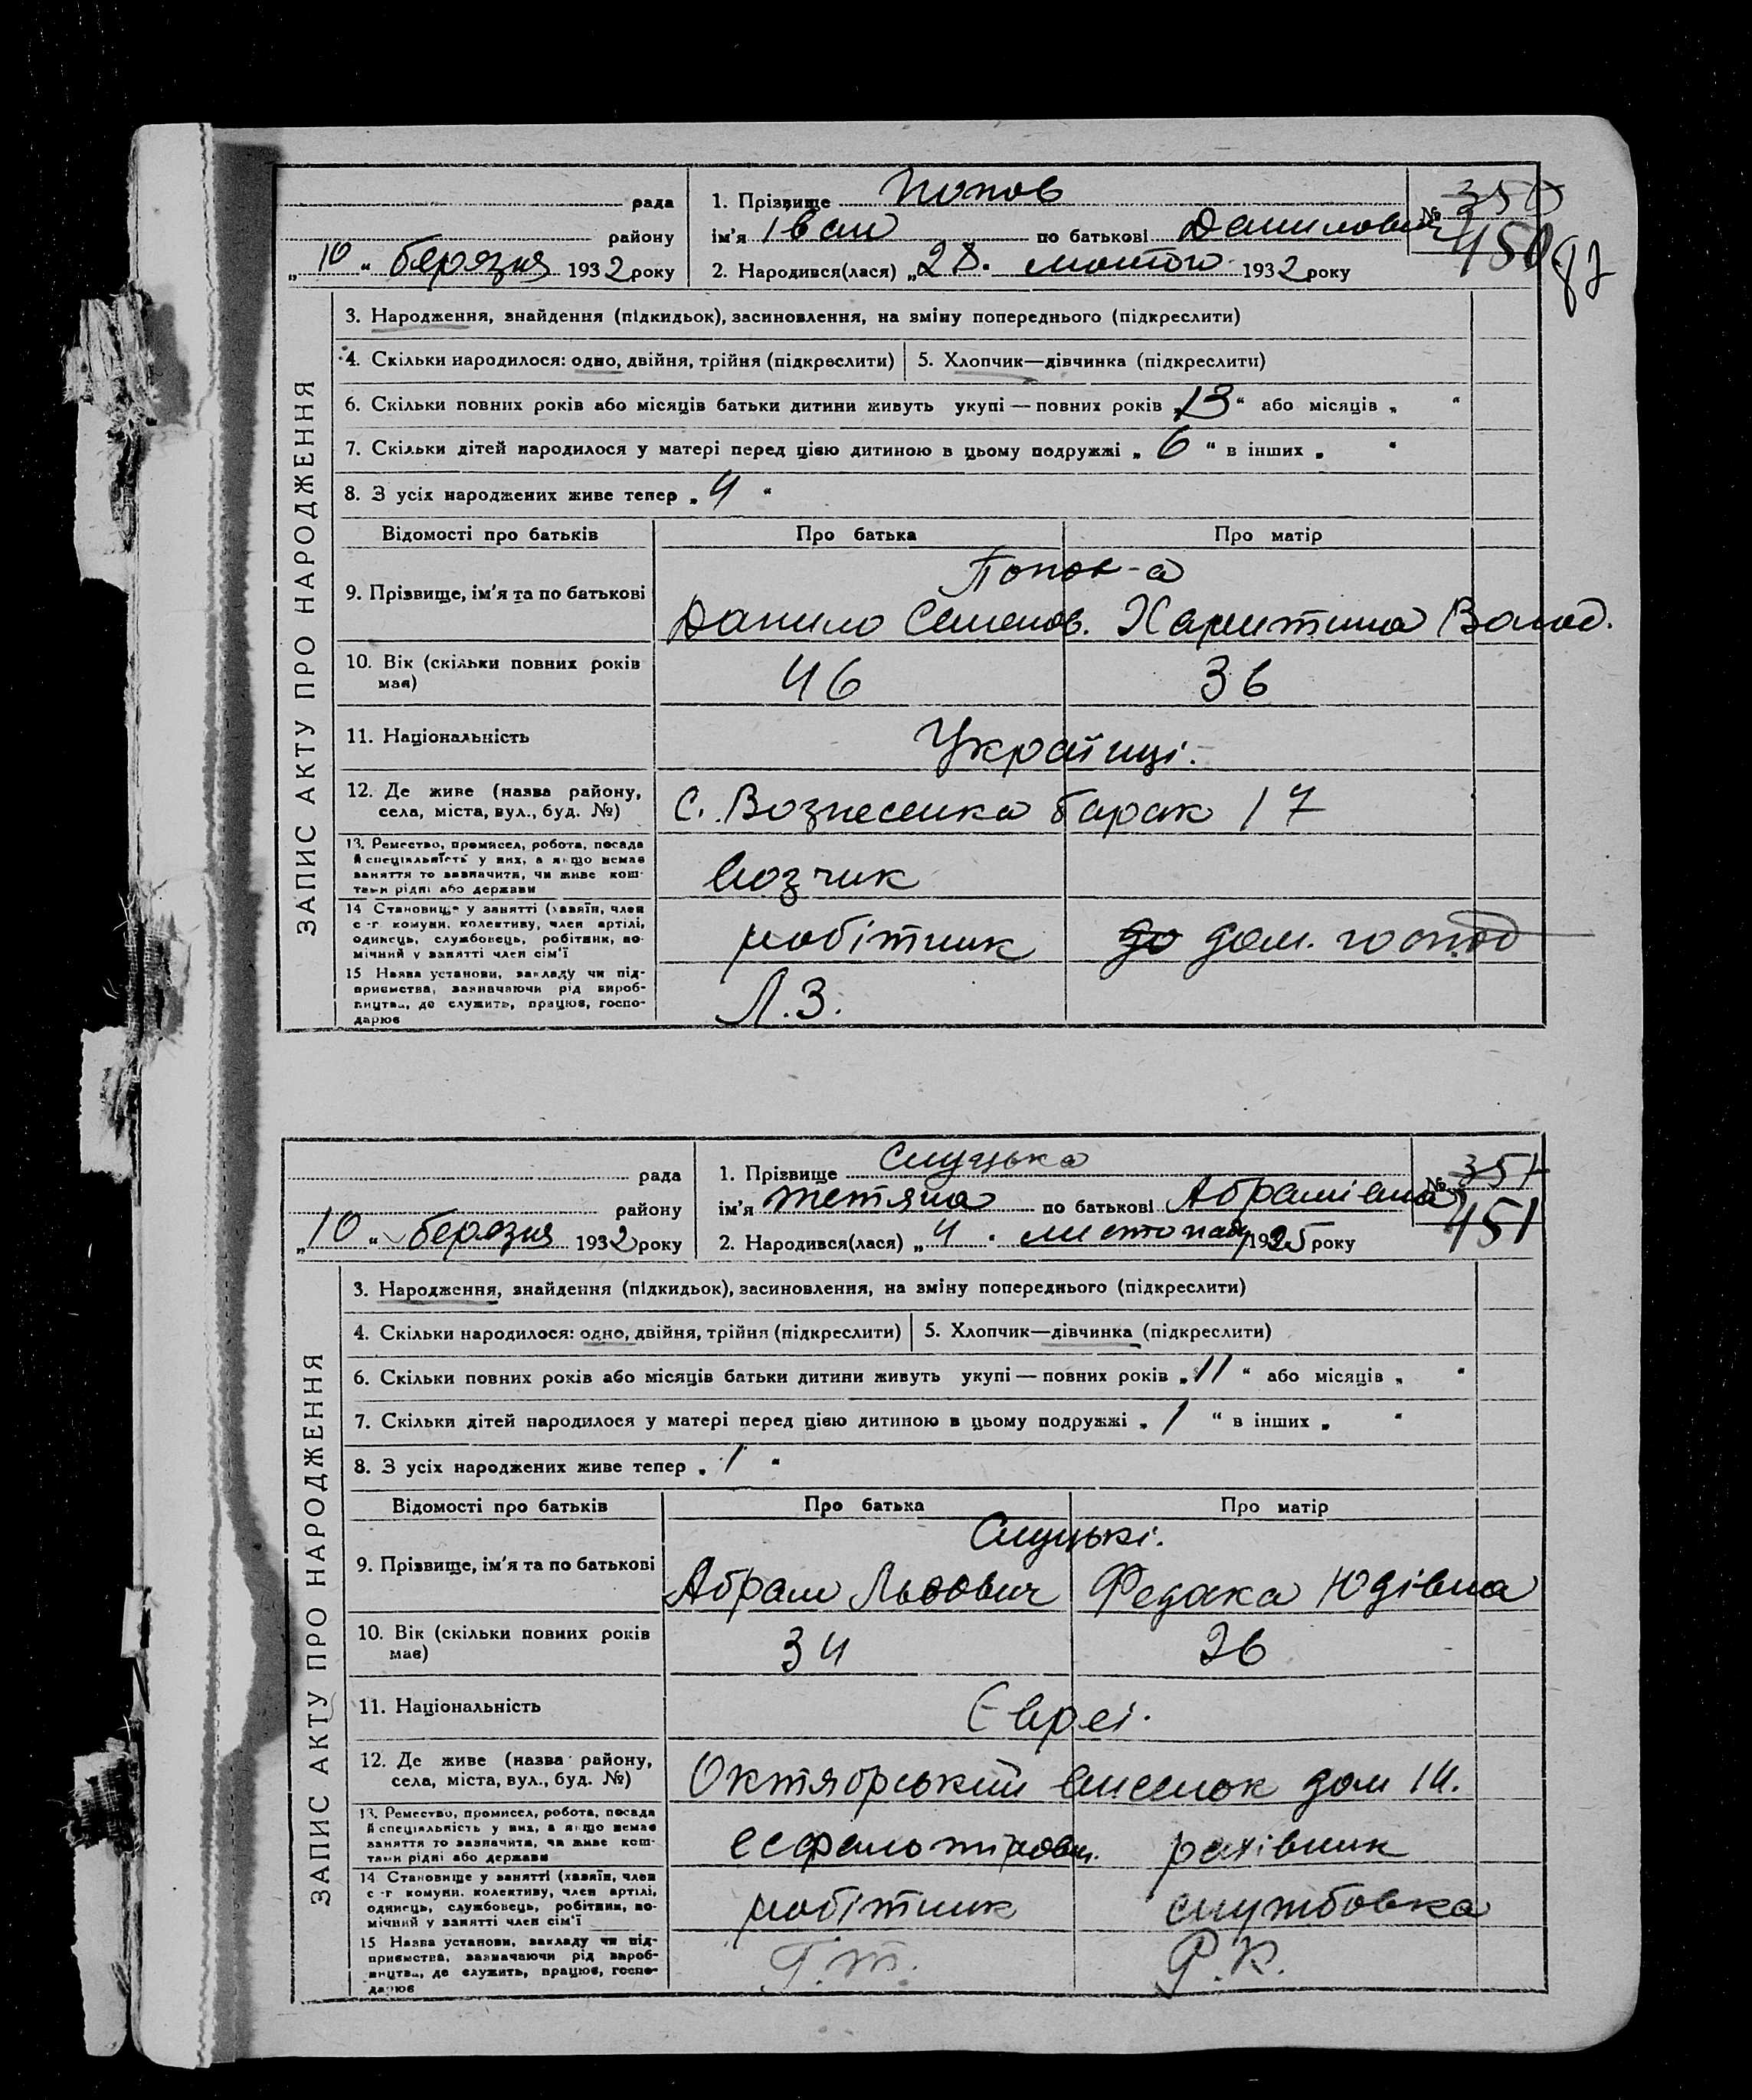 рада
1. Прізвище Попов
350
району
ім'я Іван по батькові Данилович
№ 450
87
„10“ березня 1932 року
2. Народився(лася) „28. лютого 1932 року
ЗАПИС АКТУ ПРО НАРОДЖЕННЯ
3. Народження, знайдення (підкидьок), засиновлення, на зміну попереднього (підкреслити)
4. Скільки народилося: одно, двійня, трійня (підкреслити) 5. Хлопчик—дівчинка (підкреслити)
6. Скільки повних років або місяців батьки дитини живуть укупі — повних років „13“ або місяців „ “
7. Скільки дітей народилося у матері перед цією дитиною в цьому подружжі „ 6 “ в інших „ “
8. З усіх народжених живе тепер „ 4 “
Відомості про батьків Про батька Про матір
Попов-а
9. Прізвище, ім'я та по батькові Данило Семенов. Харитина Волод.
10. Вік (скільки повних років
має)
46 36
11. Національність Українці.
12. Де живе (назва району,
села, міста, вул., буд. №)
С. Вознесенка барак 17
13. Ремество, промисел, робота, посада
й спеціяльність у них, а якщо немає
заняття то зазначити, чи живе кош-
тами рідні або держави
возчик
14 Становище у занятті (хазяїн, член
с.-г. комуни, колективу, член артілі,
одинець, службовець, робітник, по-
мічний у занятті член сім'ї
робітник до дом. господ
15 Назва установи, закладу чи під-
приємства, зазначаючи рід вироб-
ництва, де служить, працює, госпо-
дарює
Л.З.
рада
1. Прізвище Слуцька
351
району
ім'я Тетяна по батькові Абрамівна
№ 451
„10“ березня 1932 року
2. Народився(лася) „4. листопаду 1925 року
ЗАПИС АКТУ ПРО НАРОДЖЕННЯ
3. Народження, знайдення (підкидьок), засиновлення, на зміну попереднього (підкреслити)
4. Скільки народилося: одно, двійня, трійня (підкреслити) 5. Хлопчик—дівчинка (підкреслити)
6. Скільки повних років або місяців батьки дитини живуть укупі — повних років „11“ або місяців „ “
7. Скільки дітей народилося у матері перед цією дитиною в цьому подружжі „ 1 “ в інших „ “
8. З усіх народжених живе тепер „ 1 “
Відомості про батьків Про батька Про матір
Слуцькі.
9. Прізвище, ім'я та по батькові Абрам Львович Юдівна
10. Вік (скільки повних років
має)
34 26
11. Національність Євреі.
12. Де живе (назва району,
села, міста, вул., буд. №)
Октяорський виселок дом 14.
13. Ремество, промисел, робота, посада
й спеціяльність у них, а якщо немає
заняття то зазначити, чи живе кош-
тами рідні або держави
рахівник
14 Становище у занятті (хазяїн, член
с.-г. комуни, колективу, член артілі,
одинець, службовець, робітник, по-
мічний у занятті член сім'ї
робітник службовка
15 Назва установи, закладу чи під-
приємства, зазначаючи рід вироб-
ництва, де служить, працює, госпо-
дарює
Г.т. Р.К.